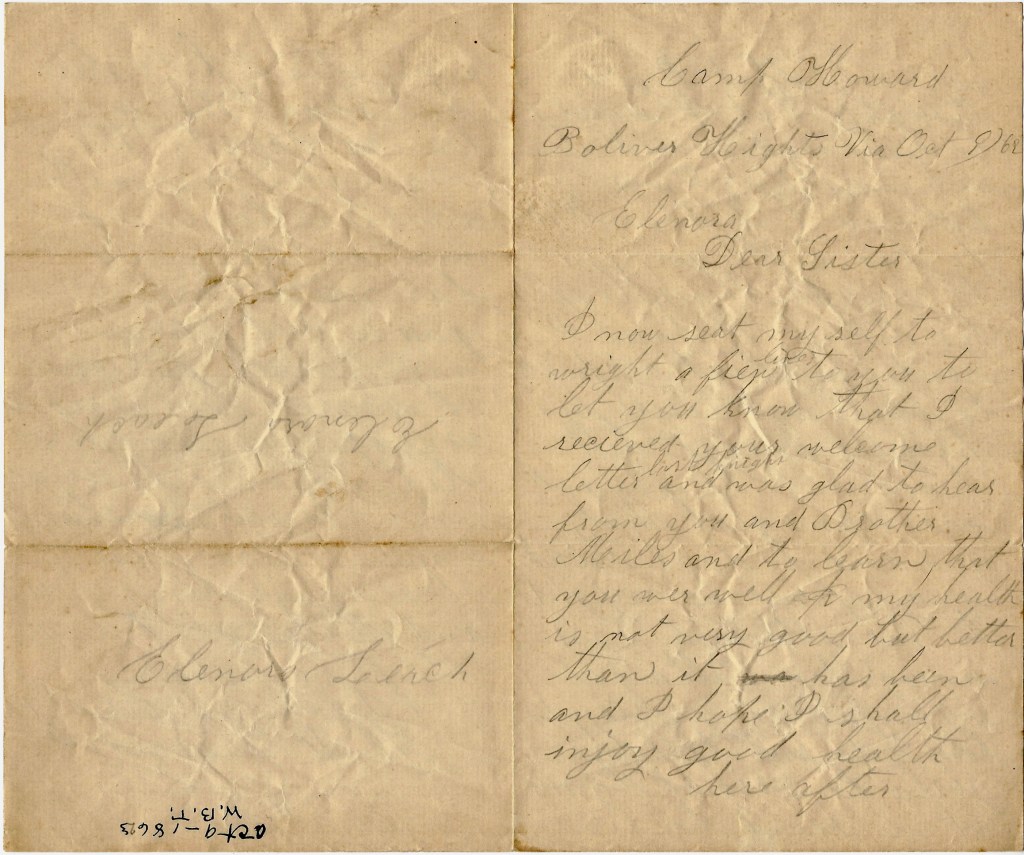 Camp Howard
Boliver Heights Via Oct 9/62
Elenora
Dear Sister
I now seat my self to
wright a fiew lines to you to
let you know that I
recieved your welcome
letter last night and was glad to hear
from you and Brother.
Miles and to learn that
you wer well my health
is not very good but better
than it has been
and I hope I shall
injoy good health
here after
Elenora Leach
Elenora Leach
Oct 9-1862
W.B.T.